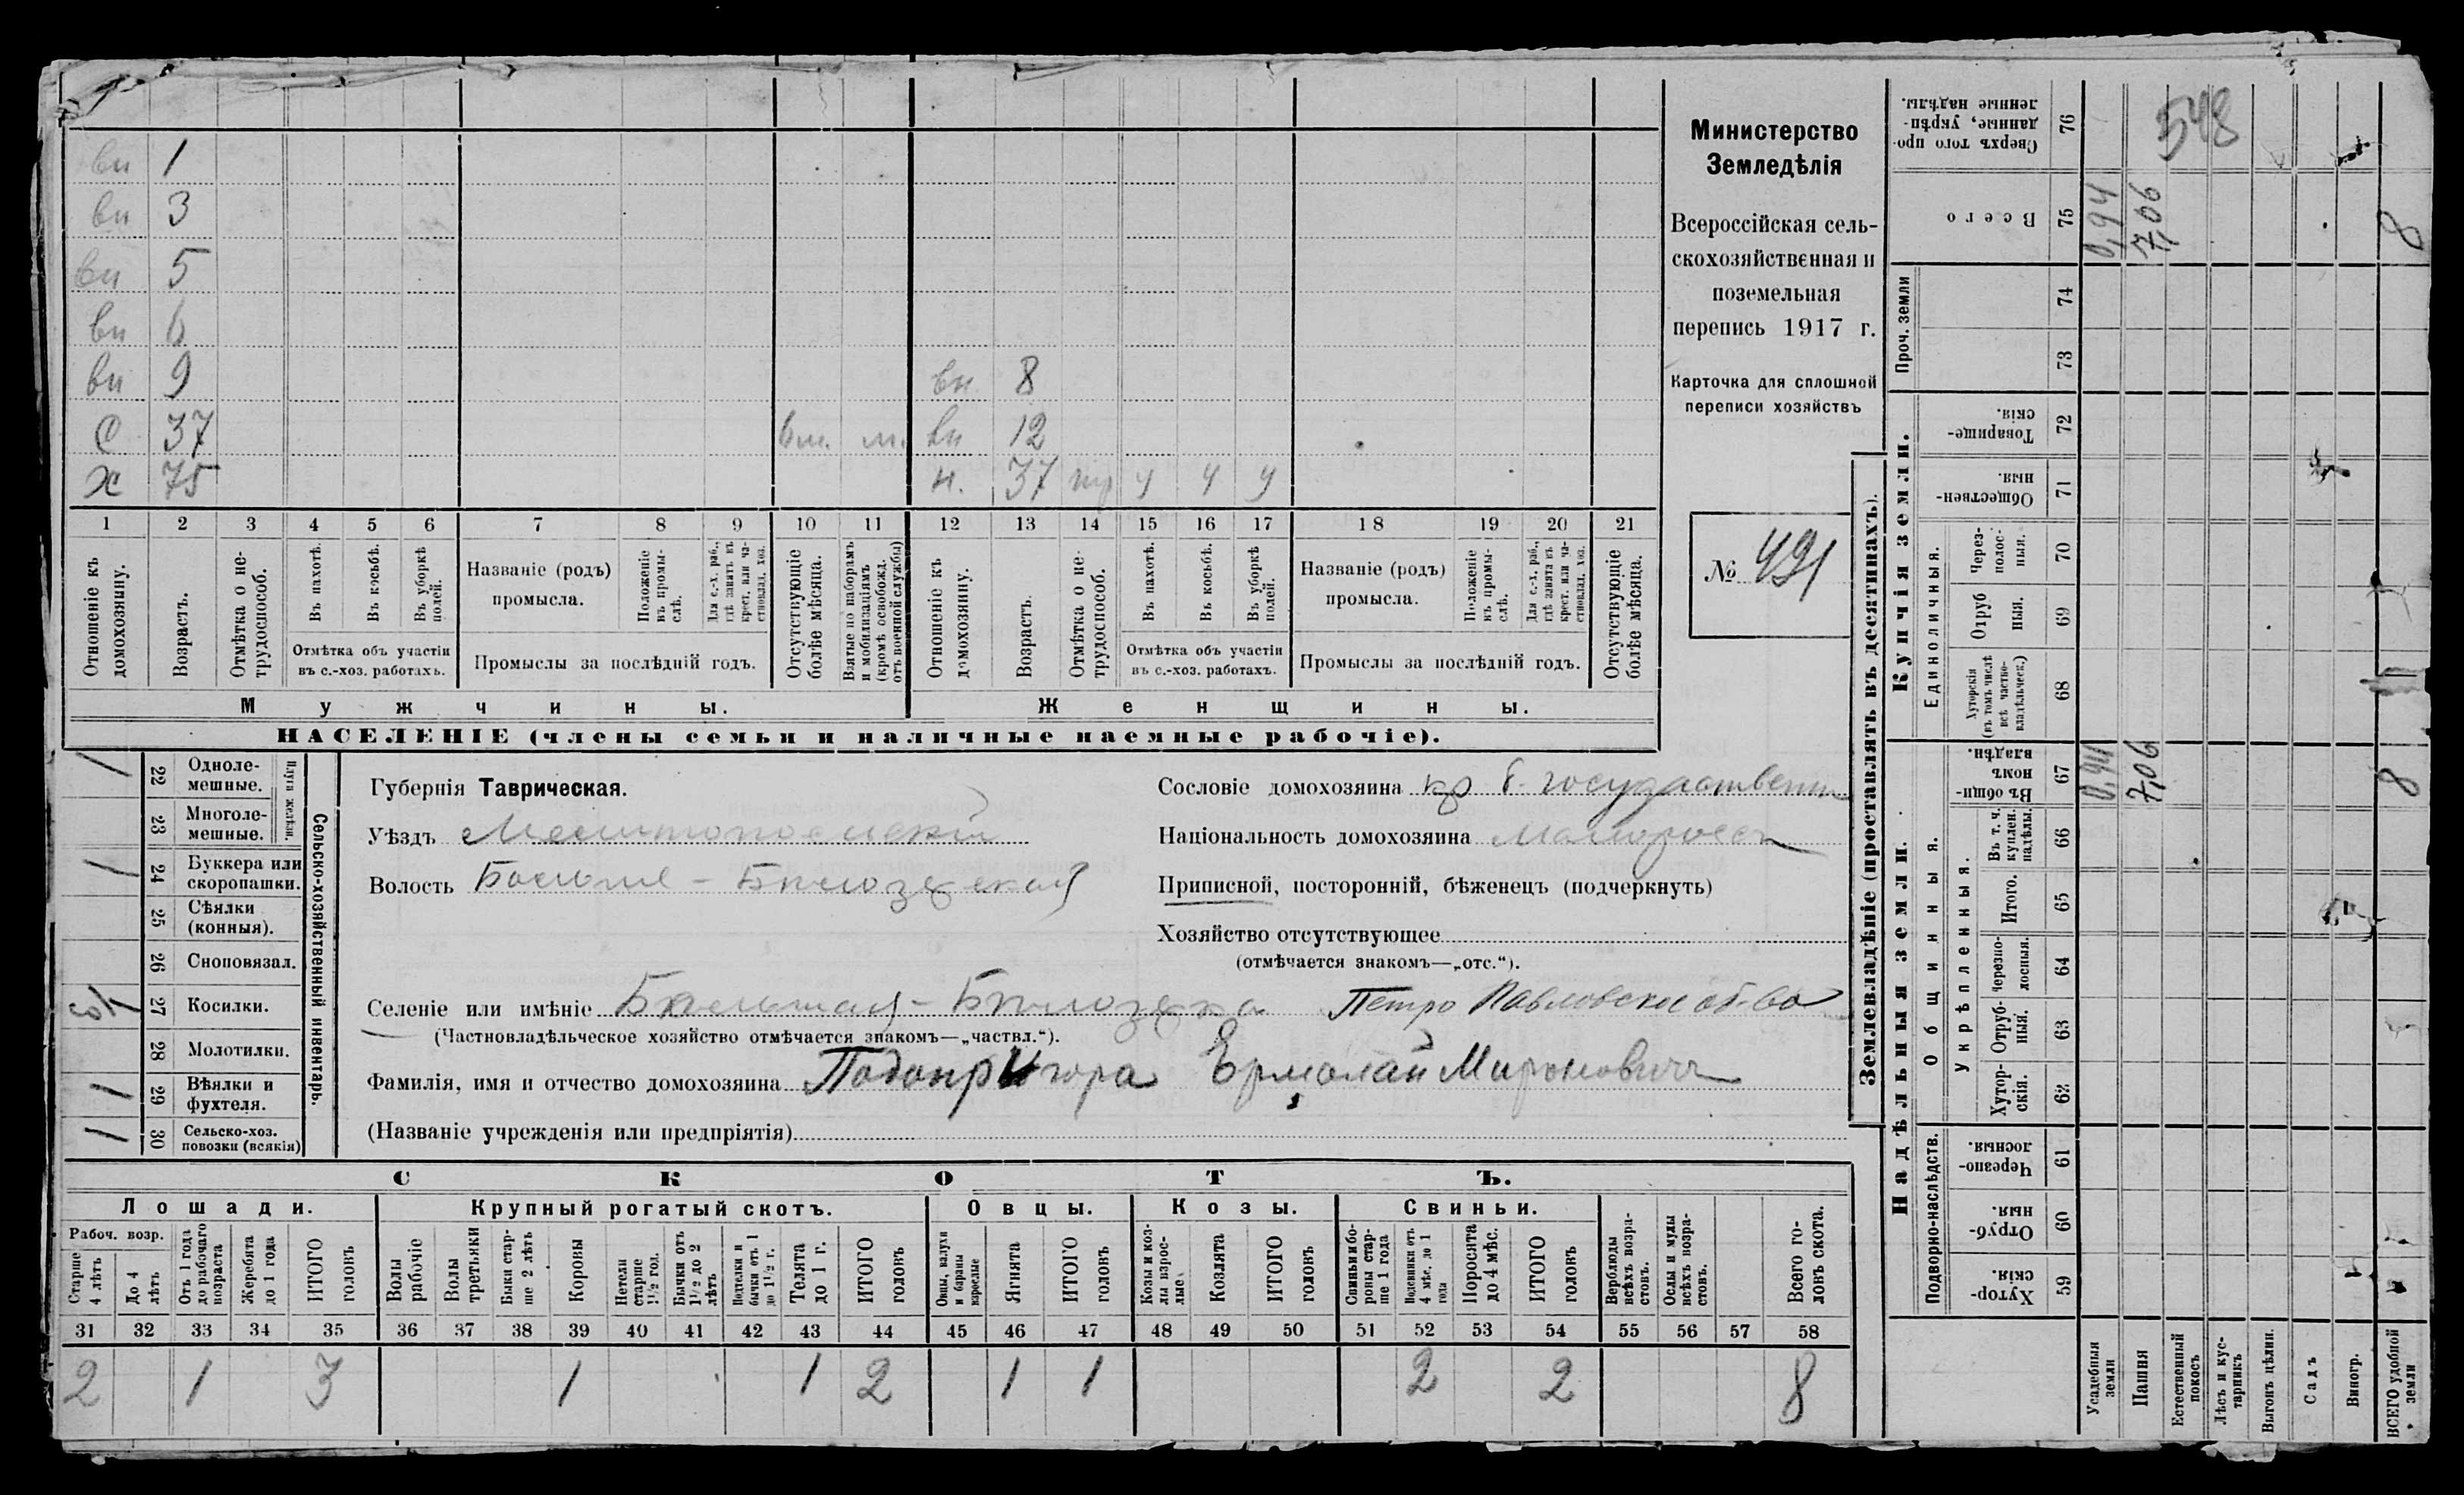 вн 1
вн 3
вн 5
вн 6
вн 9 вн. 8
С 37 вм. м. вн 12
Х 75 н. 37 тр ч ч ч
1 2 3 4 5 6 7 8 9 10 11 12 13 14 15 16 17 18 19 20 21
Отношеніе къ домохозяину.
Возрастъ.
Отмѣтка о нетрудоспособ.
Въ пахотѣ.
Въ косьбѣ.
Въ уборкѣ полей.
Отмѣтка объ участіи въ с.-хоз. работахъ.
Названіе (родъ) промысла.
Положеніе въ промыслѣ.
Для с.-х. раб., гдѣ занятъ въ крест. или частновлад. хоз.
Промыслы за послѣдній годъ.
Отсутствующіе болѣе мѣсяца.
Взятые по наборамъ и мобилизаціямъ (кромѣ освобожд. отъ военной службы)
Отношеніе къ домохозяину.
Возрастъ.
Отмѣтка о нетрудоспособ.
Въ пахотѣ.
Въ косьбѣ.
Въ уборкѣ полей.
Отмѣтка объ участіи въ с.-хоз. работахъ.
Названіе (родъ) промысла.
Положеніе въ промыслѣ.
Для с.-х. раб., гдѣ занята въ крест. или частновлад. хоз.
Промыслы за послѣдній годъ.
Отсутствующіе болѣе мѣсяца.
Мужчины. Женщины.
НАСЕЛЕНІЕ (члены семьи и наличные наемные рабочіе).
Министерство
Земледѣлія
Всероссійская сель-
скохозяйственная и
поземельная
перепись 1917 г.
Карточка для сплошной
переписи хозяйствъ
№ 491
Сельско-хозяйственный инвентарь.
Плуги желѣзн.
1 22 Одноле-мешные.
23 Многоле-мешные.
1 24 Буккера или скоропашки.
25 Сѣялки (конныя).
26 Сноповязал.
27 Косилки.
28 Молотилки.
1 29 Вѣялки и фухтеля.
1 30 Сельско-хоз. повозки (всякія)
Губернія Таврическая.
Уѣздъ Мелитопольскій
Волость Больше-Бѣлозерская
Селеніе или имѣніе Большая-Бѣлозерка Петро Павловское об-во
(Частновладѣльческое хозяйство отмѣчается знакомъ—„частвл.“).
Фамилія, имя и отчество домохозяина Подопригора Ермолай Миронович
(Названіе учрежденія или предпріятія)
Сословіе домохозяина кр б. государственн
Національность домохозяина Малоросс
Приписной, посторонній, бѣженецъ (подчеркнуть)
Хозяйство отсутствующее
(отмѣчается знакомъ—„отс.“).
СКОТЪ.
Лошади. Крупный рогатый скотъ. Овцы. Козы. Свиньи.
Рабоч. возр.
Старше 4 лѣтъ
До 4 лѣтъ
Отъ 1 года до рабочаго возраста
Жеребята до 1 года
ИТОГО головъ
Волы рабочіе
Волы третьяки
Быки старше 2 лѣтъ
Коровы
Нетели старше 1½ год.
Бычки отъ 1½ до 2 лѣтъ
Подтелки и бычки отъ 1 до 1½ г.
Телята до 1 г.
ИТОГО головъ
Овцы, валухи и бараны взрослые
Ягнята
ИТОГО головъ
Козы и козлы взрослые
Козлята
ИТОГО головъ
Свиньи и боровы старше 1 года
Подсвинки отъ 4 мѣс. до 1 года
Поросята до 4 мѣс.
ИТОГО головъ
Верблюды всѣхъ возрастовъ.
Ослы и мулы всѣхъ возрастовъ.
Всего головъ скота.
31 32 33 34 35 36 37 38 39 40 41 42 43 44 45 46 47 48 49 50 51 52 53 54 55 56 57 58
2 1 3 1 1 2 1 1 2 2 8
Землевладѣніе (проставлять въ десятинахъ).
Надѣльныя земли. Купчія земли. Проч. земли
Подворно-наслѣдств.
Общинныя.
Укрѣпленныя.
Единоличныя.
Хуторскія. 59
Отрубныя. 60
Черезполосныя. 61
Хуторскія. 62
Отрубныя. 63
Черезполосныя. 64
Итого. 65
Въ т. ч. куплен. надѣлы. 66
Въ общинномъ владѣн. 67 0,94 7,06 8
Хуторскія (въ томъ числѣ всѣ частновладѣльческ.) 68
Отрубныя. 69
Черезполосныя. 70
Общественныя. 71
Товарищескія. 72
73
74
Всего 75 0,94 7,06 8
Сверхъ того проданные, укрѣпленные надѣлы. 76
548
Усадебныя земли
Пашня
Естественный покосъ
Лѣсъ и кустарникъ
Выгонъ цѣлин.
Садъ
Виногр.
ВСЕГО удобной земли